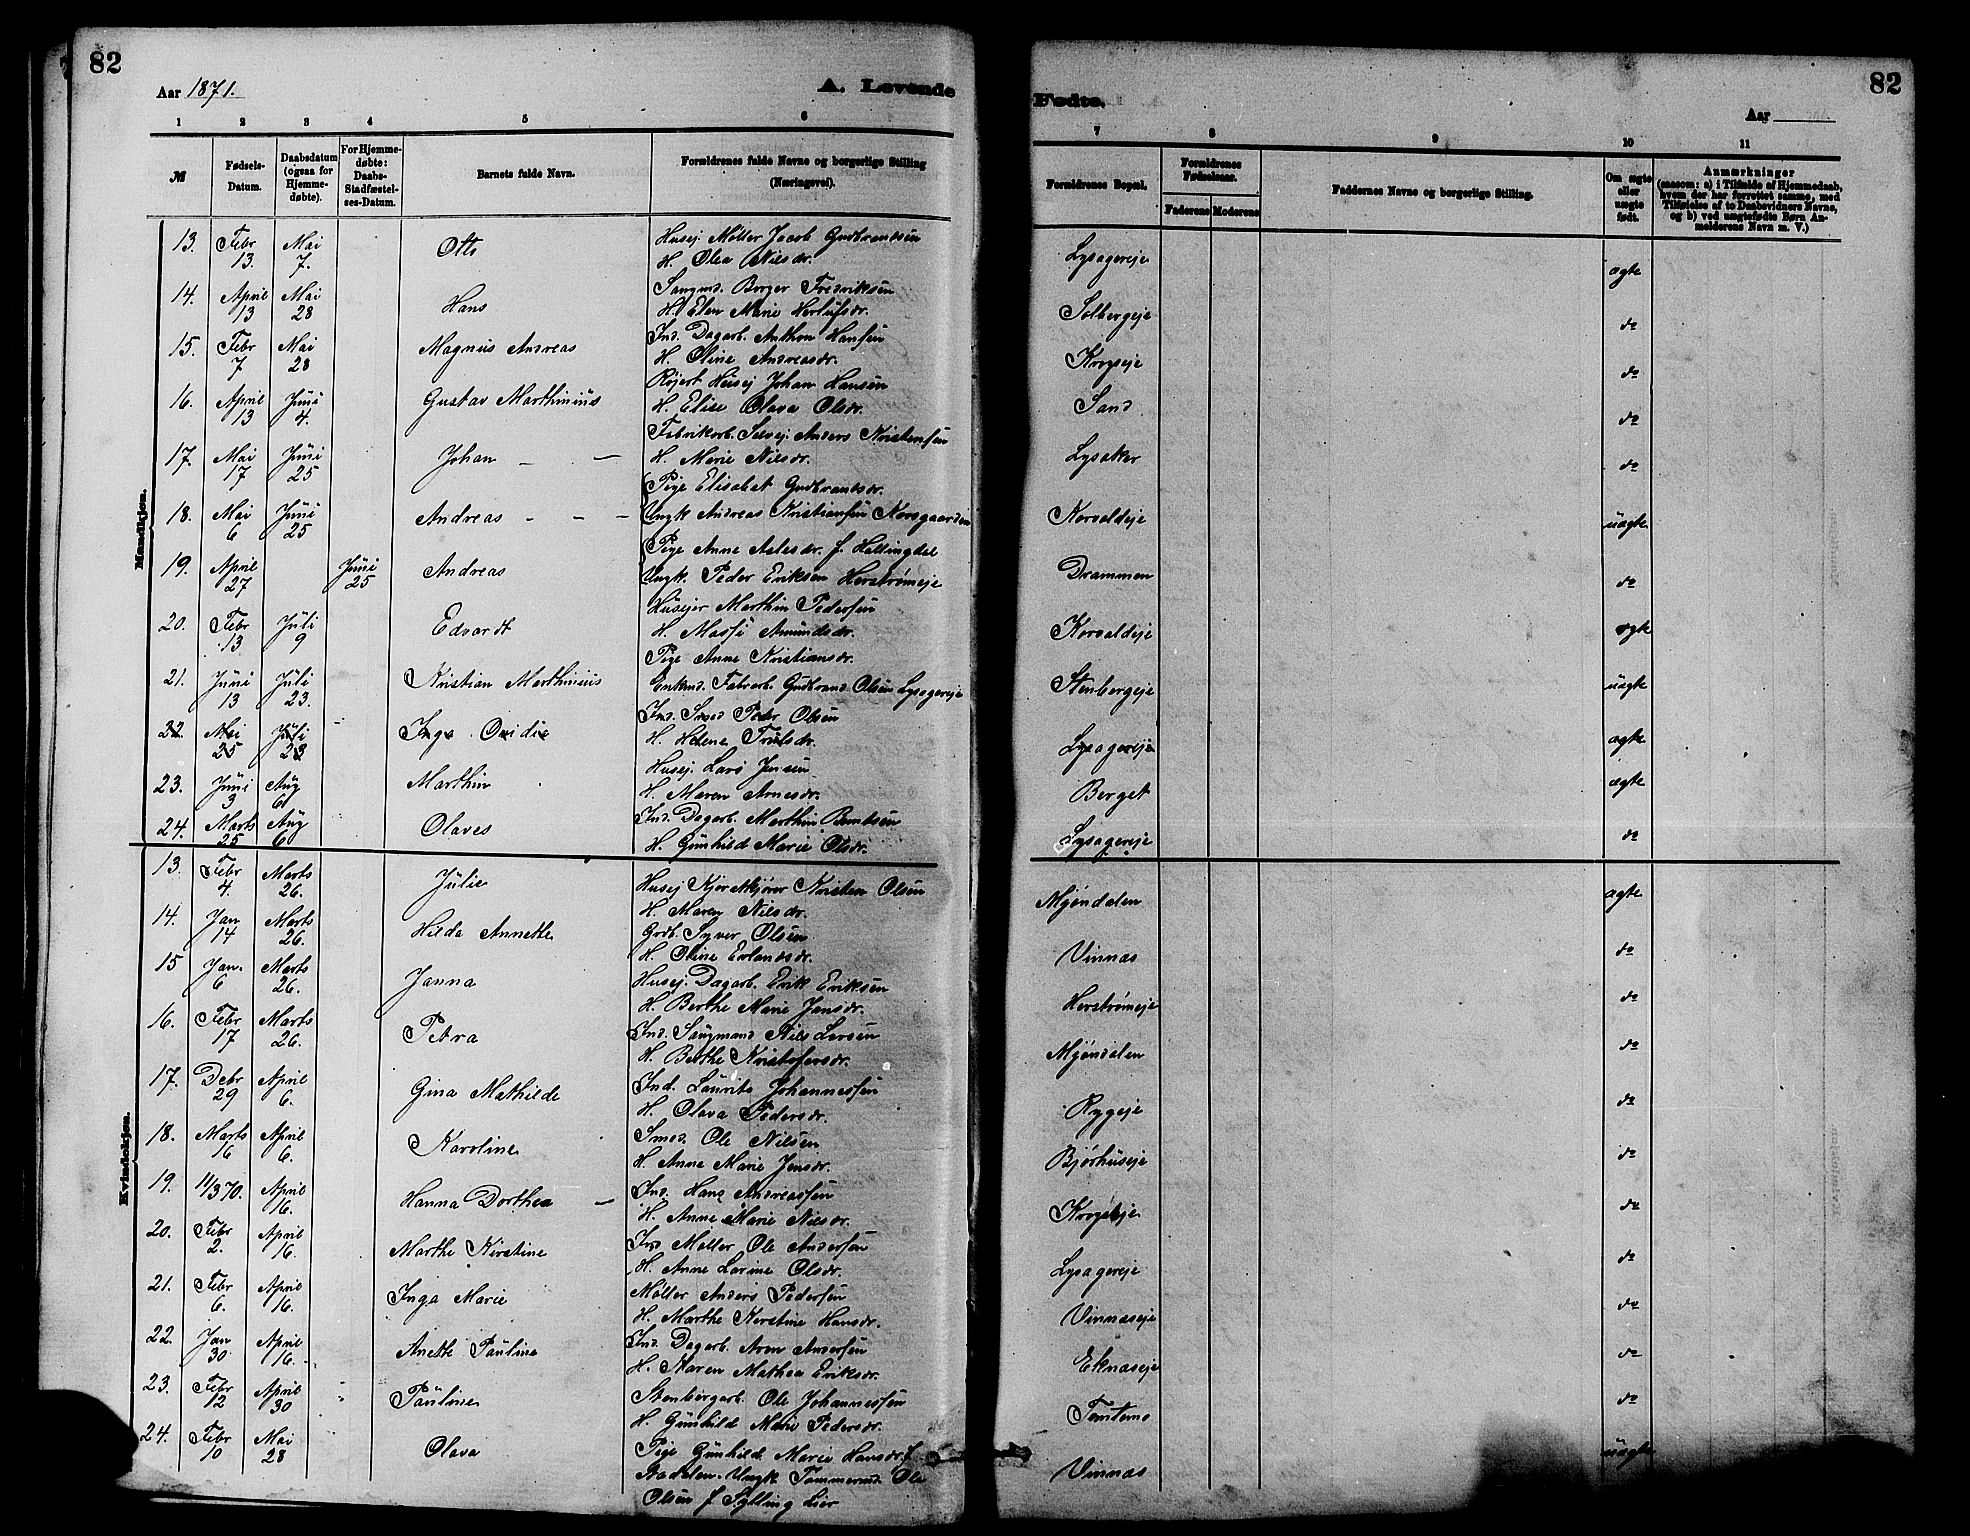 82
Aar 1871.
A. Levende
1 2 3 4 5 6
№ Fødsels-Datum. Daabsdatum (ogsaa for Hjemmedøbte). For Hjemmedøbte: Daabs-Stadfæstelses-Datum. Barnets fulde Navn. Forældrenes fulde Navne og borgerlige Stilling (Næringsvei).
Mandkjøn.
13. Febr 13. Mai 7. Otto Husej Møller Jacob Gudbrandsen
H. Olea Nilsdr.
14. April 13 Mai 28 Hans Saugmd. Berger Fredriksen
H. Elen Marie Herlufsdr.
15. Febr 7 Mai 28 Magnus Andreas Ind. Dagarb. Anthon Hansen
H. Oline Andreasdr.
16. April 13 Juni 4. Gustav Marthinius Røjert Husej Johan Hansen
H. Elise Olava Olsdr.
17. Mai 17 Juni 25 Johan — — Fabrikarb. Selvej. Anders Kristensen
H. Marie Nilsdr.
18. Mai 6 Juni 25 Andreas - - - Pige Elisabet Gudbrandsdr.
Ungk Andreas Kristiansen Korsgaarden
19. April 27 Juni 25 Andreas Pige Anne Aslesdr. f. Hallingdal
Ungk. Peder Eriksen Herstrømeje
20. Febr 13 Juli 9 Edvardt Husejer Marthin Pedersen
H. Massi Amundsdr.
21. Juni 13 Juli 23. Kristian Marthinius Pige Anne Kristiansdr.
Enkmd. Fabrarb. Gudbrand Olsen Lysagereje
22. Mai 25 Juli 23 Inga Ovidie Ind. Smed Peder Olsen
H. Helene Trulsdr.
23. Juni 3 Aug 6 Marthin Husej. Lars Jensen
H. Maren Arnesdr.
24. Marts 25 Aug 6 Olaves Ind. Dagarb. Marthin Berntsen
H. Gunhild Marie Olsdr.
Kvindekjøn.
13. Febr 4 Marts 26. Julie Husej Kristen Olsen
H. Maren Nilsdr.
14. Jan 14 Marts 26. Hilda Annette Grdb. Syver Olsen
H. Oline Erlandsdr.
15 Jan. 6 Marts 26. Janna Husej. Dagarb. Erik Eriksen
H. Berthe Marie Jansdr.
16. Febr 17 Marts 26. Petra Ind. Saugmand Nils Larsen
H. Berthe Kristofersdr.
17. Debr 29 April 6. Gina Mathilde Ind. Laurits Johannessen
H. Olava Pedersdr.
18. Marts 16 April 6. Karoline Smed. Ole Nilsen
H. Anne Marie Jensdr.
19. 11/3 70. April 16. Hanna Dorthea — Ind. Hans Andreassen
H. Anne Marie Nilsdr.
20. Febr 2. April 16. Marthe Kirstine Ind Møller Ole Andersen
H. Anne Larine Olsdr.
21. Febr 6. April 16. Inga Marie Møller Anders Pedersen
H. Marthe Kirstine Hansdr.
22. Jan 30 April 16. Anette Pauline Ind. Dagarb. Aren Andersen
H. Karen Mathea Eriksdr.
23. Febr 12 April 30 Pauline Stenbergarb. Ole Johannessen
H. Gunhild Marie Pedersdr.
24. Febr 10 Mai 28 Olava Pige Gunhild Marie Hansdr. f
Aadalen. Ungk Tømmermd Ole
Olsen f Sylling Lier
82
Fødte.
Aar
7 8 9 10 11
Forældrenes Bopæl. Forældrenes Fødselsaar. Faderens Moderens Faddernes Navne og borgerlige Stilling. Om ægte eller uægte født. Anmærkninger (saasom: a) i Tilfælde af Hjemmedaab, hvem der har forrettet samme, med Tilføielse af to Daabsvidners Navne, og b) ved uægtefødte Børn Anmelderens Navn m. V.)
Lysagereje ægte
Solbergeje do
Krogseje do
Sand do
Lysaker do
Korvaldeje uægte
Drammen do
Korvaldeje ægte
Stenbergeje uægte
Lysagereje ægte
Berget ægte
Lysagereje do
Mjøndalen ægte
Vinnas do
Herstrømeje do
Mjøndalen do
Rygeje do
Bjørhuseje do
Krogseje do
Lysagereje do
Vinnaseje do
Eknaseje do
Temtemo do
Vinnas uægte